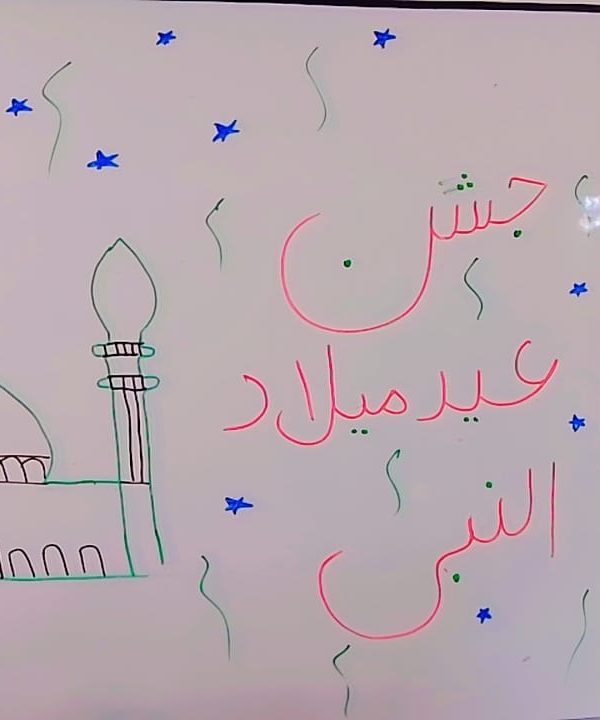 جشن
عید میلاد
النبی